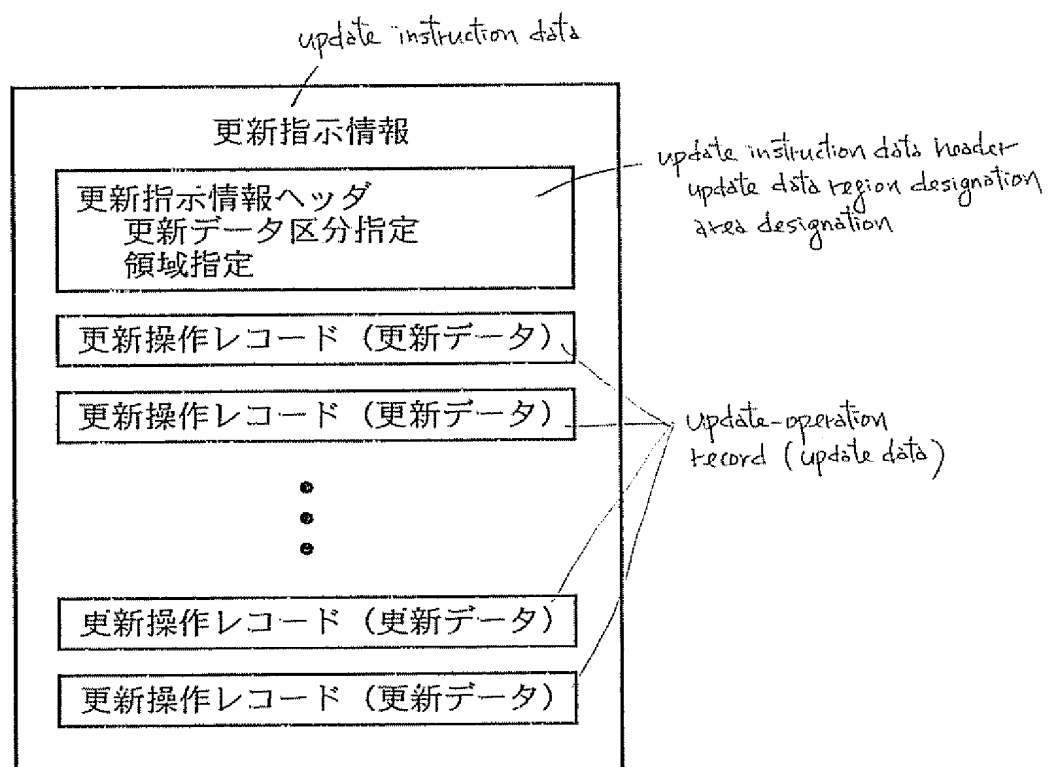 update instruction data
更新指示情報
更新指示情報ヘッダ
更新データ区分指定
領域指定
update instruction data header
update data region designation
area designation
更新操作レコード（更新データ）
更新操作レコード（更新データ）
update-operation
record (update data)
更新操作レコード（更新データ）
更新操作レコード（更新データ）